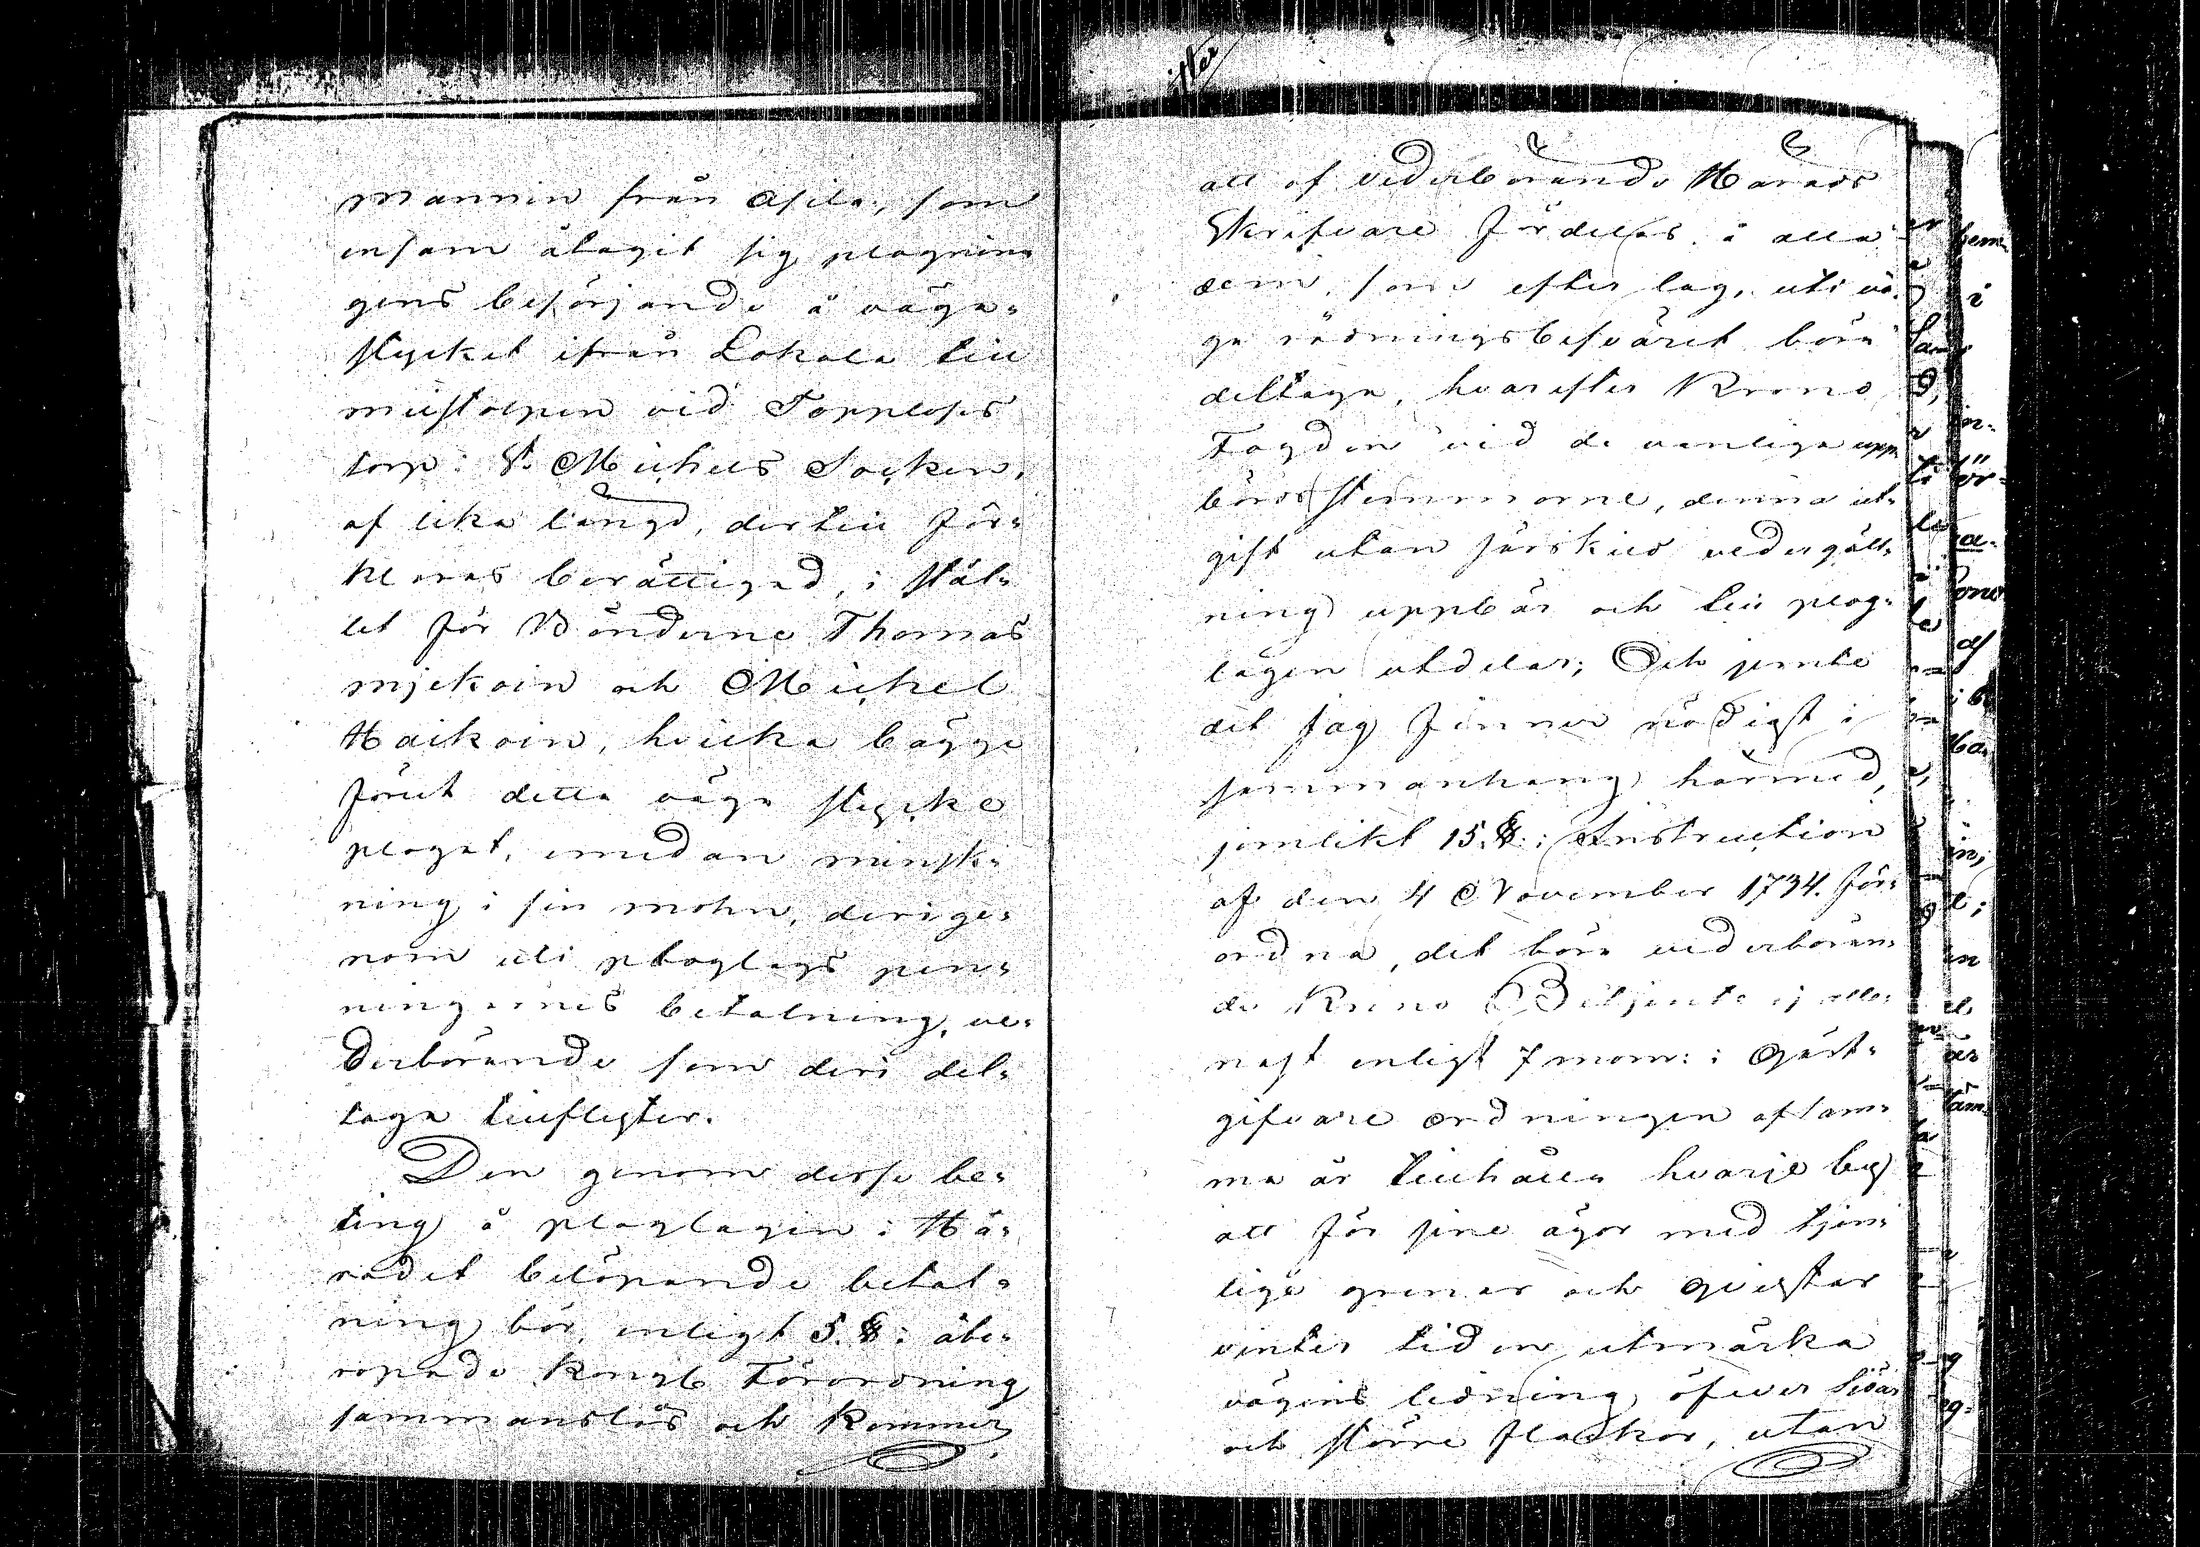 mannen från Asila, som
ensam åtagit sig plognin-
gens besörjande å väga-
stycket ifrån Lokala till
milstolpen vid Topplosis
torp i St. Michels Socken,
af lika längd, der till för-
klaras berättigad, i stäl-
let för Bönderne Thomas
mjekoin och Michel
Haikoin, hvilka bägge
förut detta väga stycke
plogat, emedan minsk-
ning i sin mohn, derige-
nom uti ploglags pen-
ningarnes betalning, ve-
derbörande som deri del-
taga tillflyter.
Den genom desse be-
ting å ploglagen i Hä-
radet belöpande betal-
ning bör, enligt 5. §. i åbe-
ropade Kongl Förordning
sammanslås och Kommer
att af vederbörande Härads
Skrifvare fördelas å alla
dem, som efter lag, uti vä-
ga rödningsbesväret böra
deltaga, hvarefter Krono
Fogden vid de vanliga upp
börds stemmorne, denna ut-
gift utan särskild vedergäll-
ning uppbär och till plog-
lagen utdelar; Och jemte
det jag finner nödigt i
sammanhang härmed,
jemlikt 15. §. i Instruction
af den 4 November 1734. för-
ordna, det böra vederböran-
de Krono Betjente ej alle-
nast enligt 7 mom: i Gäst-
gifvare ordningen af sam-
ma år tillhålla hvarje by
att för sine ägor med tjen-
lige grenar och qvistar
vinter tiden utmärka
vägens ledning öfver sjöar
och större flackor, utan